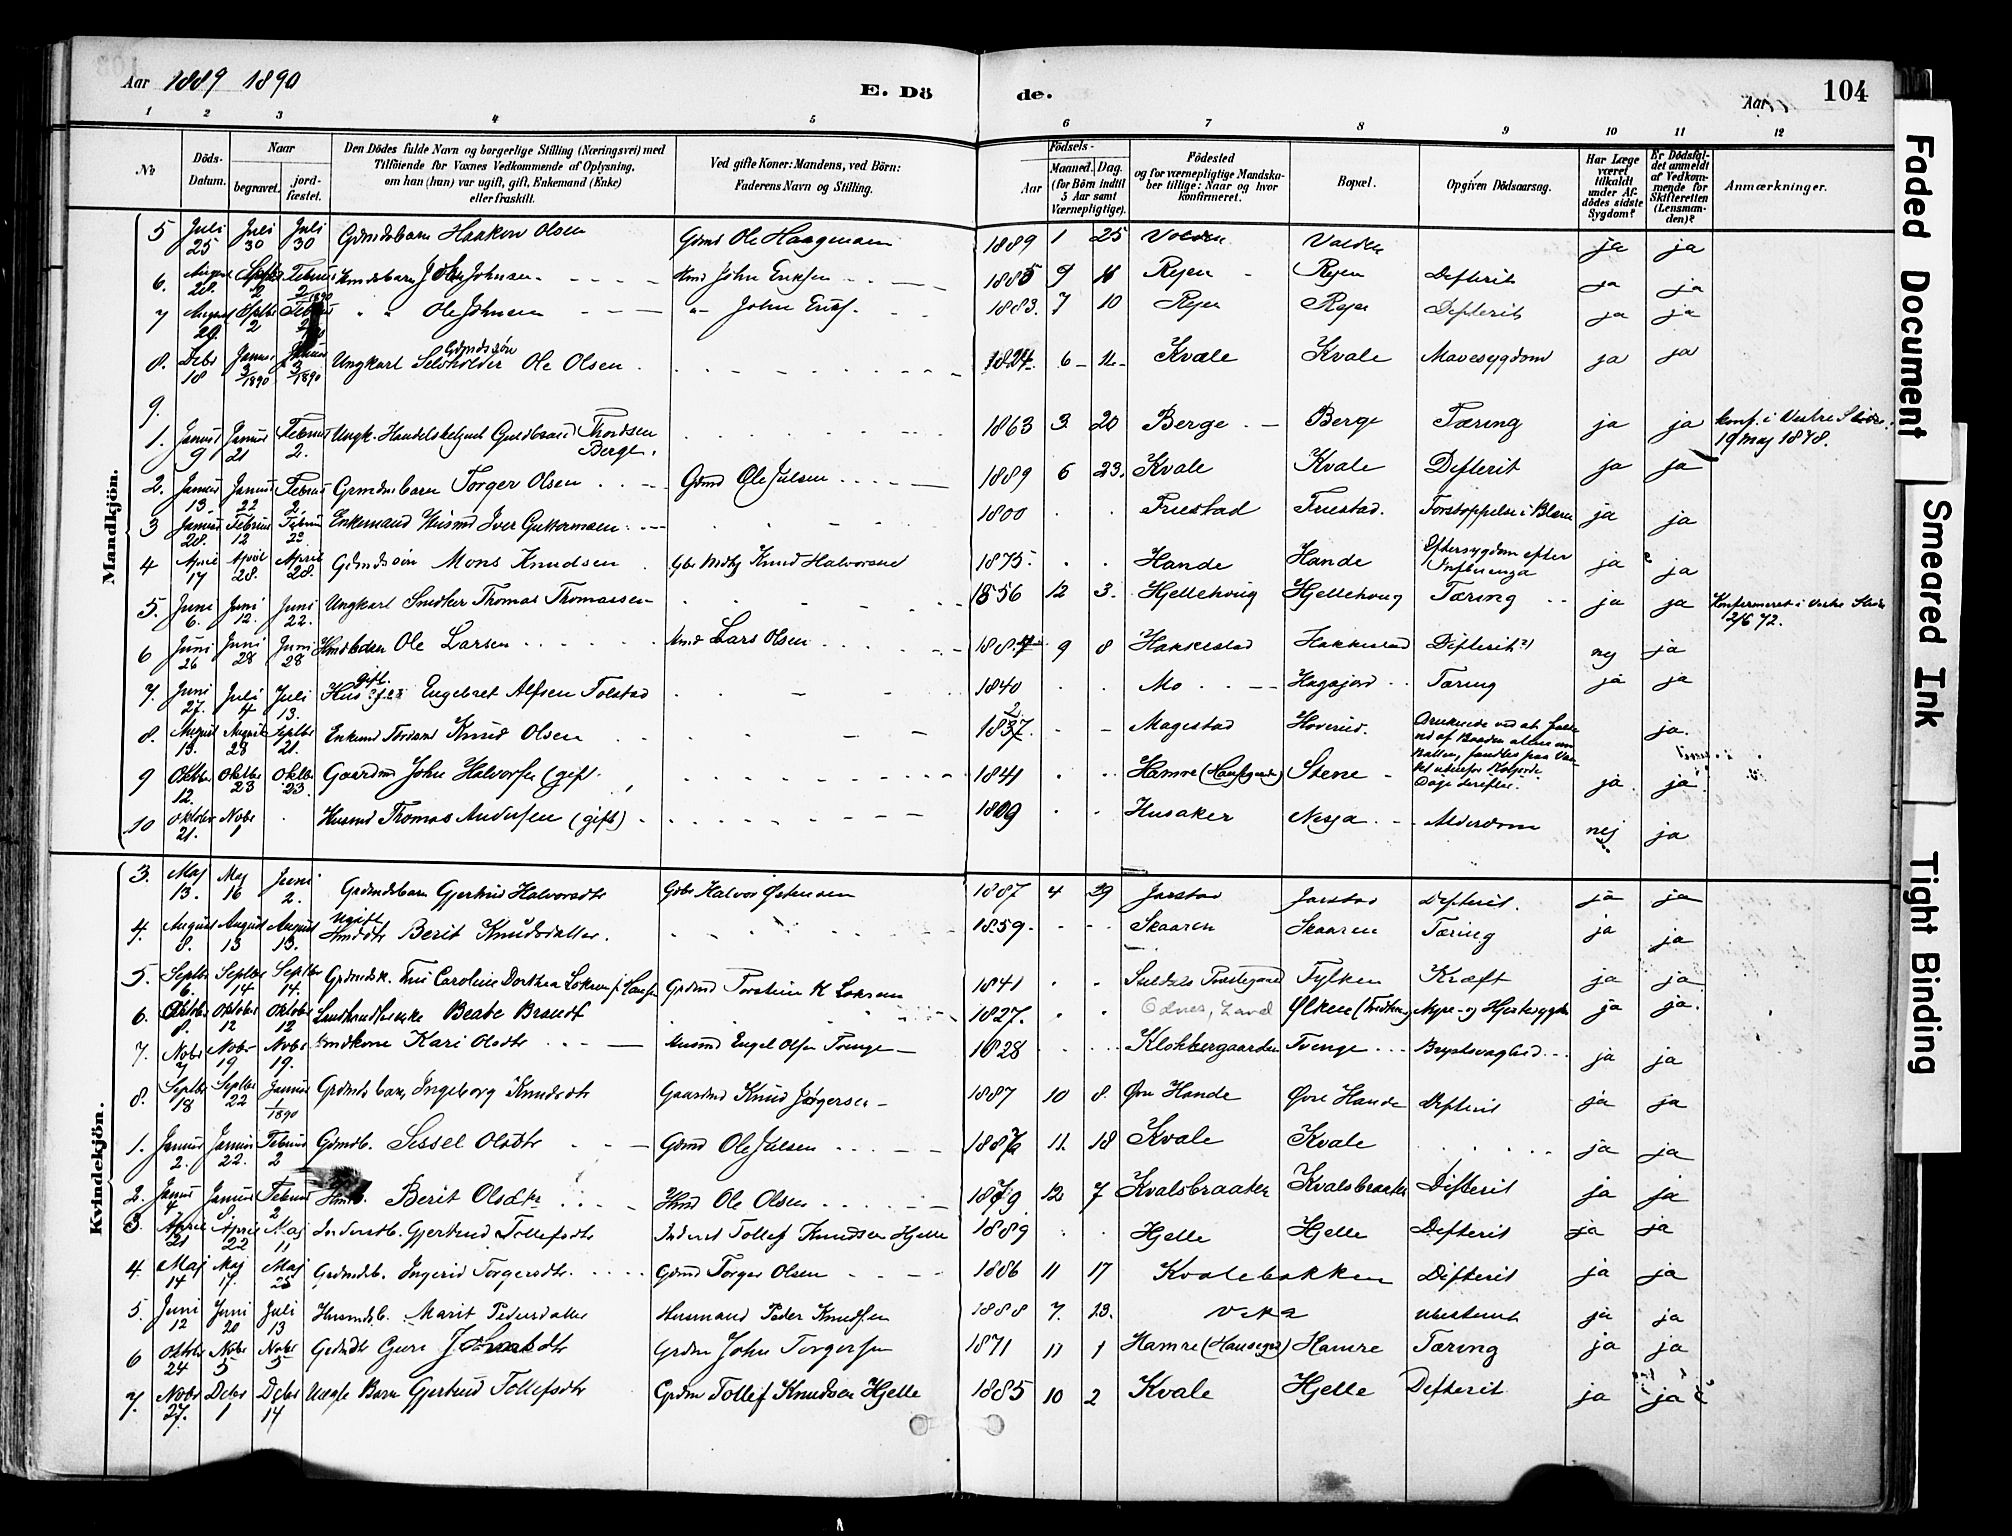 Aar 1889 1890
E. Dö de.
Aar
104
1 2 3 4 5 6 7 8 9 10 11 12
No
Döds-Datum.
Naar
begravet.
jord-fæstet.
Den Dödes fulde Navn og borgerlige Stilling (Næringsvei) med
Tilföiende for Voxnes Vedkommende af Oplysning,
om han (hun) var ugift, gift, Enkemand (Enke)
eller fraskilt.
Ved gifte Koner: Mandens, ved Börn:
Faderens Navn og Stilling.
Födsels-
Aar
Maaned. Dag.
(for Börn indtil
5 Aar samt
Værnepligtige).
Födested
og for værnepligtige Mandska-
ber tillige: Naar og hvor
konfirmeret.
Bopæl.
Opgiven Dödsaarsag.
Har Læge
været
tilkaldt
under Af-
dödes sidste
Sygdom?
Er Dödsfal-
det anmeldt
af Vedkom-
mende for
Skifteretten
(Lensman-
den)?
Anmærkninger.
Mandkjön.
5 Juli 25 Juli 30 Juli 30 Grdmdsbarn Haakon Olsen Grdmd Ole Haagensen 1889 1 25 Volden Volden ja ja
6. August 28. Septbr 2 Februar 2/1890 Hmdsbarn John Johnsen Hmd John Eriksen 1885 9 Ryen Ryen Difterit ja ja
7 August 29. Septbr 2 Februar " " Ole Johnsen " John Eriks. 1883. 7 10 Ryen Ryen Difterit ja ja
8. Debr 18 Januar 3/1890 Januar 3/1890 Ungkarl Grdmdssøn Ole Olsen 1824 6 11 Kvale Kvale Mavesygdom ja ja
9.
1. Januar 9 Januar 21 Februar 2. Ungk. Handelsbetjent Guldbrand Thordsen Berge. 1863 3 20 Berge Berge Tæring ja ja konf. i Vestre Slidre 19 maj 1878.
2. Januar 13. Januar 22 Februar 2. Grmdsbarn Torger Olsen Grdmd Ole Julsen 1889 6 23. Kvale Kvale Difterit ja ja
3 Januar 28. Februar 12 Februar 23 Enkemand Husmd Iver Guttormsen 1800 Fuestad Fuestad. Forstoppelse i Blæren ja ja
4 April 17 April 28. April 28. Grdmdssøn Mons Knudsen Gbr Knud Halvorsen 1875 Hande Hande Eftersygdom efter Influenza ja ja
5. Juni 6. Juni 12. Juni 22. Ungkarl Snedker Thomas Thomassen 1856 12 3. Hjellehoug Hjellehoug Tæring ja ja Konfirmeret i Vestre Slidre 2/6 72.
6 Juni 26 Juni 28 Juni 28 Hmdsbarn Ole Larsen Hmd Lars Olsen 9 8 Hakkestad Hakkestad Difterit ?) nej ja
7. Juni 27. Juli 4 Juli 13. gift. Engebret Alfsen Tolstad 1840 Mo Hagajord Tæring ja ja
8. August 13. August 28 Septbr 21. Enkemd Knud Olsen 1837. Magestad Hoverud. ja.
9 Oktbr 12. Oktbr 23 Oktbr 23. Gaardmd John Halvorsen (gift. 1841 Hamre Stene ja ja
10 Oktober 21. Nobr 1 Husmd Thomas Andersen (gift) 1809 Husaker Nesja Alderdom nej ja
Kvindekjön.
3. Maj 13. Maj 16 Juni 2. Grdmdsbarn Gjertrud Halvorsdtr Gdbr Halvor Østensen 1887 4 29 Jarstad Jarstad Difterit. ja ja
4. August 8. August 13 August 13. Ugift Hmddtr Berit Knudsdatter. 1859. Skaaren Skaaren Tæring ja ja
5. Septbr 6. Septbr 14 Septbr 14. Grdmdsk. Fru Caroline Dorthea Loksen f. Grdmd Torstein K Loksen 1841 Fylken Kræft ja ja
6. Oktober 8. Oktober 12 Oktober 12 Landhandlerenke Beate Brandt 1827. Odnes, Land Ylken Nyre- og Hjertesygdom ja ja.
7. Nobr 7 Nobr 19 Nobr 19. Hmdkone Kari Olsdtr Husmd Engel Olsen Tvenge 1828 Klokkergaarden Tvenge Brystsvaghed ja ja
8. Septbr 18 Septbr 22 Januar 1/1890 Grdmdsbarn Ingeborg Knudsdtr Gaardmd Knud Jørgensen 1887 10 8. Øvre Hande Øvre Hande Difterit ja ja
1. Januar 2. Januar 22. Februar 2 Grdmdb. Sissel Olsdtr Grdmd Ole Julsen 11. 18 Kvale Kvale ja ja
2. Januar 4 Januar 8. Februar 2 Hmdb. Berit Olsdtr Hmd Ole Olsen 1879 12 7 Kvalsbraaten Kvalsbraaten Difterit ja ja
3. April 21 April 22 Maj 11 Inderstb. Gjertrud Tollefsdtr Inderst Tollef Knudsen Hjelle 1889 Hjelle Hjelle Difterit ja ja
4. Maj 14 Maj 17. Maj 25 Grdmdsb. Ingerid Torgersdtr. Grdmd Torger Olsen 1886 11 17 Kvalebakken Difterit ja ja
5. Juni 12 Juni 20 Juli 13 Husmdsb. Marit Pedersdatter Husmand Peder Knudsen 1888 7. 23. Ubestemt ja ja
6 Oktbr 24 Nobr 5 Nobr 5 Grdmdtr Guri Johnsdtr Grdm John Torgersen 1871 11 1 Hamre Hamre Tæring ja ja
7. Nobr 27. Debr 1 Debr 14 Uægte Barn Gjertrud Tollefsdtr Grdm Tollef Knudsen Hjelle 1885 10 2 Kvale Hjelle Difterit ja ja
Faded Document
Smeared Ink
Tight Binding